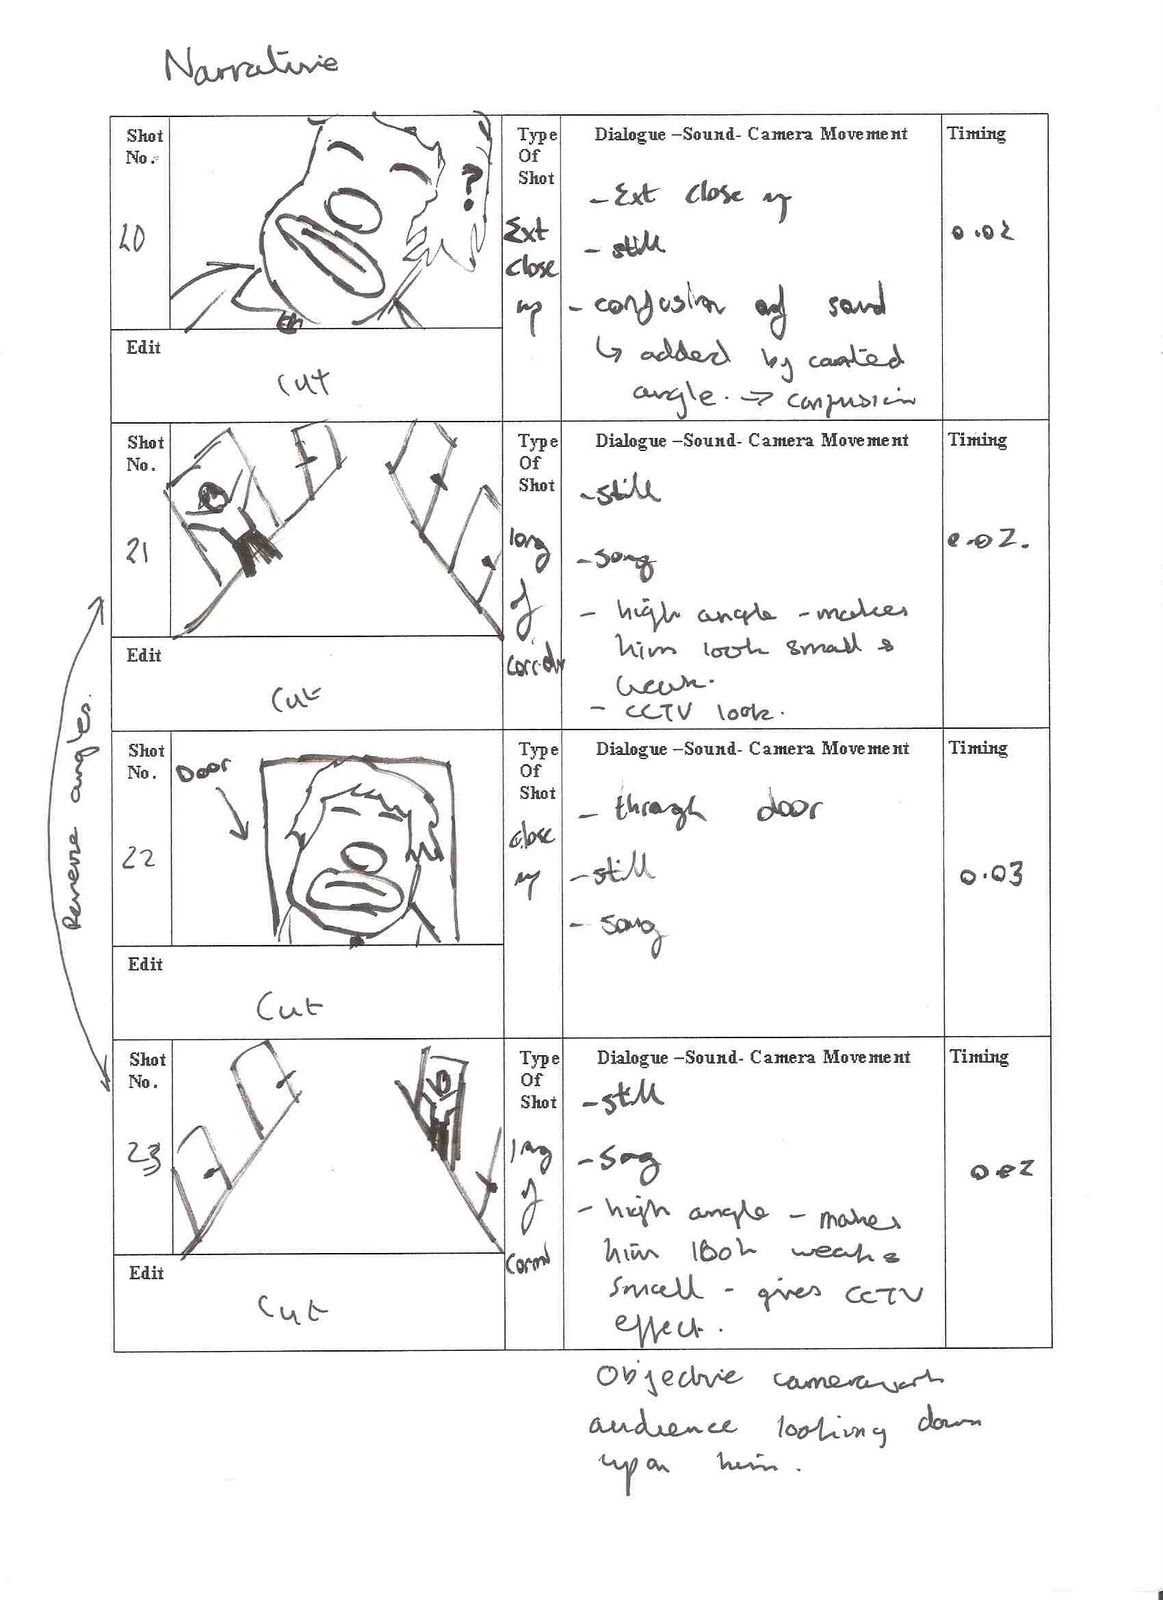 Narrative
Shot
No.
20
?
Type
Of
Shot
Ext
close
up
Dialogue –Sound- Camera Movement
- Ext close up
- still
- confusion of sound
↳ added by canted
angle. → confusion
Timing
0.02
Edit
Cut
Shot
No.
21
Type
Of
Shot
long
of
corridor
Dialogue –Sound- Camera Movement
- still
- song
- high angle - makes
him look small &
weak.
- CCTV look.
Timing
0.02.
Edit
Cut
Reverse angles.
Shot
No.
22
Door
Type
Of
Shot
close
up
Dialogue –Sound- Camera Movement
- through door
- still
- song
Timing
0.03
Edit
Cut
Shot
No.
23
Type
Of
Shot
long
of
Dialogue –Sound- Camera Movement
- still
- song
- high angle - makes
him look weak &
small - gives CCTV
effect.
Timing
0.02
Edit
Cut
Objective camerawork
audience looking down
upon him.